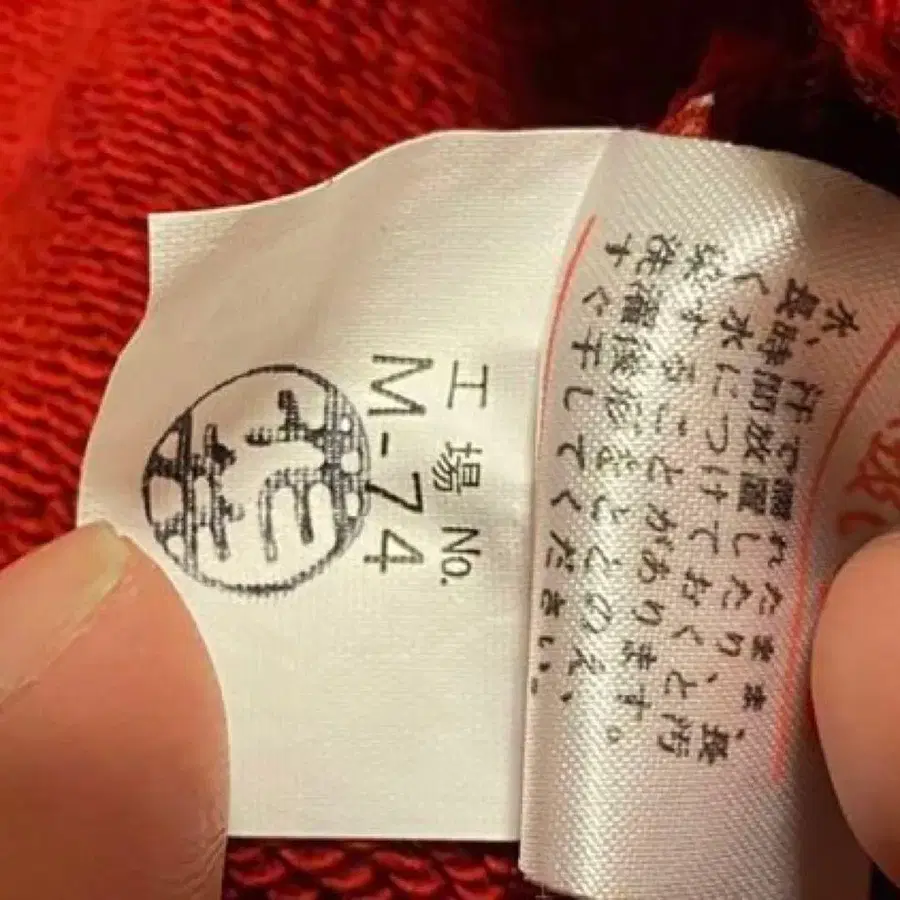 水、汗で濡れたまま、長
長時間放置したり、
く水につけておくと汚
染することがあります。
洗濯後形をととのえ、
すぐ干してください。
工場 No.
M-74